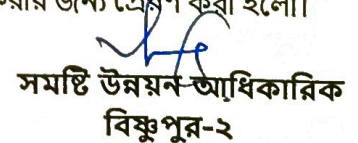 জন্য প্রেরণ করা হলো।
সমষ্টি উন্নয়ন আধিকারিক
বিষ্ণুপুর-২